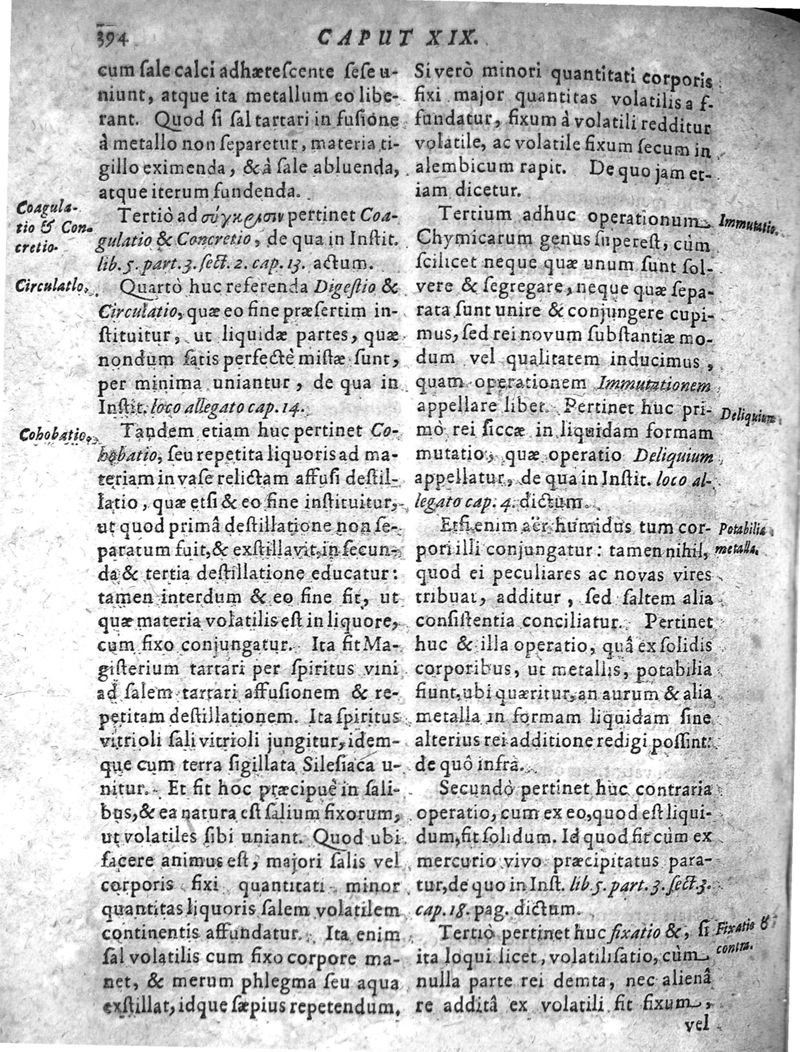 394
CAPUT XIX.
cum sale calci adhærescente sese u-
niunt, atque ita metallum eo libe-
rant. Quod si sal tartari in fusione
à metallo non separetur, materia ti-
gillo eximenda, & à sale abluenda,
atque iterum fundenda.
Coagula-
tio & Con-
cretio.
Tertiò ad σύγκρισιν pertinet Coa-
gulatio & Concretio, de qua in Instit.
lib. 5. part. 3. sect. 2. cap. 13. actum.
Circulatio.
Quartò huc referenda Digestio &
Circulatio, quæ eo fine præsertim in-
stituitur, ut liquidæ partes, quæ
nondum satis perfectè mistæ sunt,
per minima uniantur, de qua in
Instit. loco allegato cap. 14.
Cohobatio.
Tandem etiam huc pertinet Co-
hobatio, seu repetita liquoris ad ma-
teriam in vase relictam affusi destil-
latio, quæ etsi & eo fine instituitur,
ut quod primâ destillatione non se-
paratum fuit, & exstillavit, in secun-
da & tertia destillatione educatur:
tamen interdum & eo fine fit, ut
quæ materia volatilis est in liquore,
cum fixo conjungatur. Ita fit Ma-
gisterium tartari per spiritus vini
ad salem tartari affusionem & re-
petitam destillationem. Ita spiritus
vitrioli sali vitrioli jungitur, idem-
que cum terra sigillata Silesiaca u-
nitur. Et fit hoc præcipuè in sali-
bus, & ea natura est salium fixorum,
ut volatiles sibi uniant. Quod ubi
facere animus est, majori salis vel
corporis fixi quantitati minor
quantitas liquoris salem volatilem
continentis affundatur. Ita enim
sal volatilis cum fixo corpore ma-
net, & merum phlegma seu aqua
exstillat, idque sæpius repetendum.
Si verò minori quantitati corporis
fixi major quantitas volatilis a f-
fundatur, fixum à volatili redditur
volatile, ac volatile fixum secum in
alembicum rapit. De quo jam et-
iam dicetur.
Tertium adhuc operationum
Immutatio.
Chymicarum genus superest, cùm
scilicet neque quæ unum sunt sol-
vere & segregare, neque quæ sepa-
rata sunt unire & conjungere cupi-
mus, sed rei novum substantiæ mo-
dum vel qualitatem inducimus,
quam operationem Immutationem
appellare libet. Pertinet huc pri-
Deliquium.
mò rei siccæ in liquidam formam
mutatio, quæ operatio Deliquium
appellatur, de qua in Instit. loco al-
legato cap. 4. dictum.
Etsi enim aër humidus tum cor-
Potabilia
metalla.
pori illi conjungatur: tamen nihil,
quod ei peculiares ac novas vires
tribuat, additur, sed saltem alia
consistentia conciliatur. Pertinet
huc & illa operatio, quâ ex solidis
corporibus, ut metallis, potabilia
fiunt, ubi quæritur, an aurum & alia
metalla in formam liquidam sine
alterius rei additione redigi possint:
de quô infrà.
Secundò pertinet huc contraria
operatio, cum ex eo, quod est liqui-
dum, fit solidum. Id quod fit cùm ex
mercurio vivo præcipitatus para-
tur, de quo in Inst. lib. 5. part. 3. sect. 3.
cap. 18. pag. dictum.
Tertiò pertinet huc fixatio &, si
Fixatio &
contra.
ita loqui licet, volatilisatio, cùm
nulla parte rei demta, nec alienâ
re additâ ex volatili fit fixum,
vel